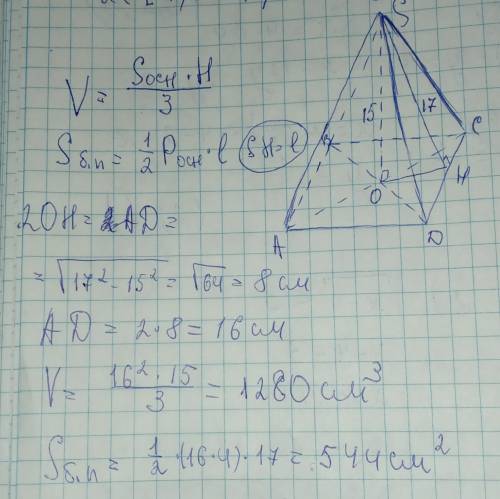 V = Sосн · H / 3
Sб.п = 1/2 Pосн · l (SH = l)
2OH = AD =
= √17² - 15² = √64 = 8 см
AD = 2 · 8 = 16 см
V = 16² · 15 / 3 = 1280 см³
Sб.п = 1/2 · (16 · 4) · 17 = 544 см²
S
15
17
C
H
O
A
D